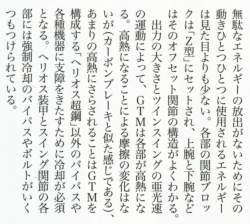 無駄なエネルギーの放出がないためにその
動きひとつひとつに使用されるエネルギー
は見た目よりも少ない。各部の関節ブロッ
クは「Z型」にセットされ、上腕と下腕など
はそのオフセット関節の構造がよくわかる。
出力の大きさとツインスイングの亜光速
の運動によって、GTMは各部が高熱にな
る。高熱になることによる摩擦の変化はな
いが(カーボンブレーキと似た感じでしょう)、
あまりの高熱にさらされることはGTMを
構成する「ヘリオス超鋼」以外のバイパスや
各種機器に支障をきたすために冷却が必須
となる。ヘリオス装甲とスイング関節の各
部には強制冷却のバイパスやボルトがいく
つもつけられている。